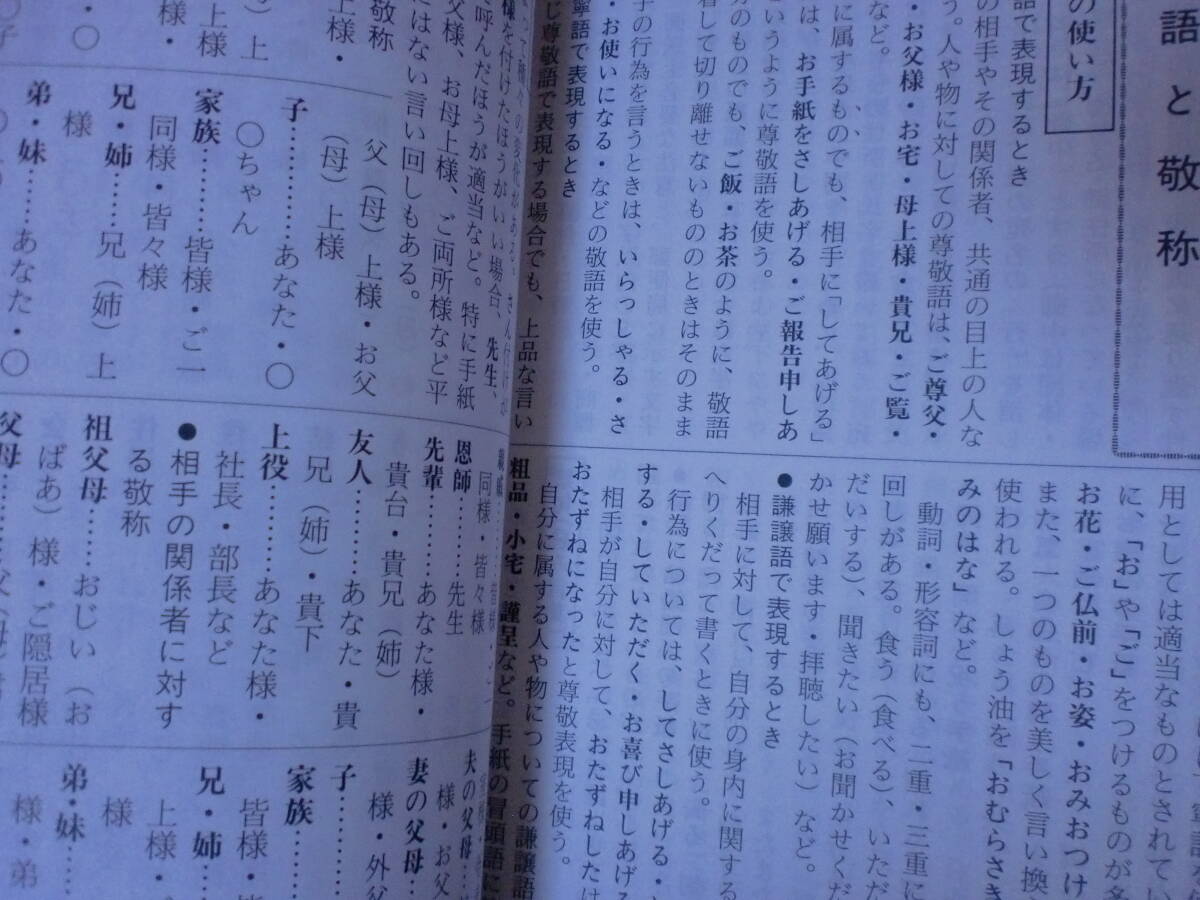 語と敬称
の使い方
語で表現するとき
の相手やその関係者、共通の目上の人な
う。人や物に対しての尊敬語は、ご尊父・
・お父様・お宅・母上様・貴兄・ご覧・
など。
に属するものでも、相手に「してあげる」
は、お手紙をさしあげる・ご報告申しあ
というように尊敬語を使う。
分のものでも、ご飯・お茶のように、敬語
着して切り離せないもののときはそのまま
手の行為を言うときは、いらっしゃる・さ
・お使いになる・などの敬語を使う。
寧語で表現するとき
じ尊敬語で表現する場合でも、上品な言い
用としては適当なものとされてい
に、「お」や「ご」をつけるものが多
お花・ご仏前・お姿・おみおつけ
また、一つのものを美しく言い換
使われる。しょう油を「おむらさき
みのはな」など。
動詞・形容詞にも、二重・三重に
回しがある。食う(食べる)、いただ
だいする)、聞きたい(お聞かせくだ
かせ願います・拝聴したい)など。
●謙譲語で表現するとき
相手に対して、自分の身内に関する
へりくだって書くときに使う。
行為については、してさしあげる・
する・していただく・お喜び申しあげる
相手が自分に対して、おたずねしたは
おたずねになったと尊敬表現を使う。
自分に属する人や物についての謙譲語
粗品・小宅・謹呈など。手紙の冒頭語に
様を付けたほうがいい場合、先生、
と呼んだほうが適当など。特に手紙
父様、お母上様、ご両所様など平
にはない言い回しもある。
敬称
上様・
父(母)上様・お父
(母)上様
子………あなた・〇
〇ちゃん
家族………皆様・ご一
同様・皆々様
兄・姉………兄(姉)上
様
弟・妹………あなた・〇
同様・皆々様
恩師………先生
先輩………あなた様・
貴台・貴兄(姉)
友人………あなた・貴
兄(姉)・貴下
上役………あなた様・
社長・部長など
●相手の関係者に対す
る敬称
祖父母………おじい(お
ばあ)様・ご隠居様
夫の父母……
様・お父
妻の父母……
様・外父
子………
家族………
皆様・
兄・姉……
上様・
様
弟・妹……
様・弟